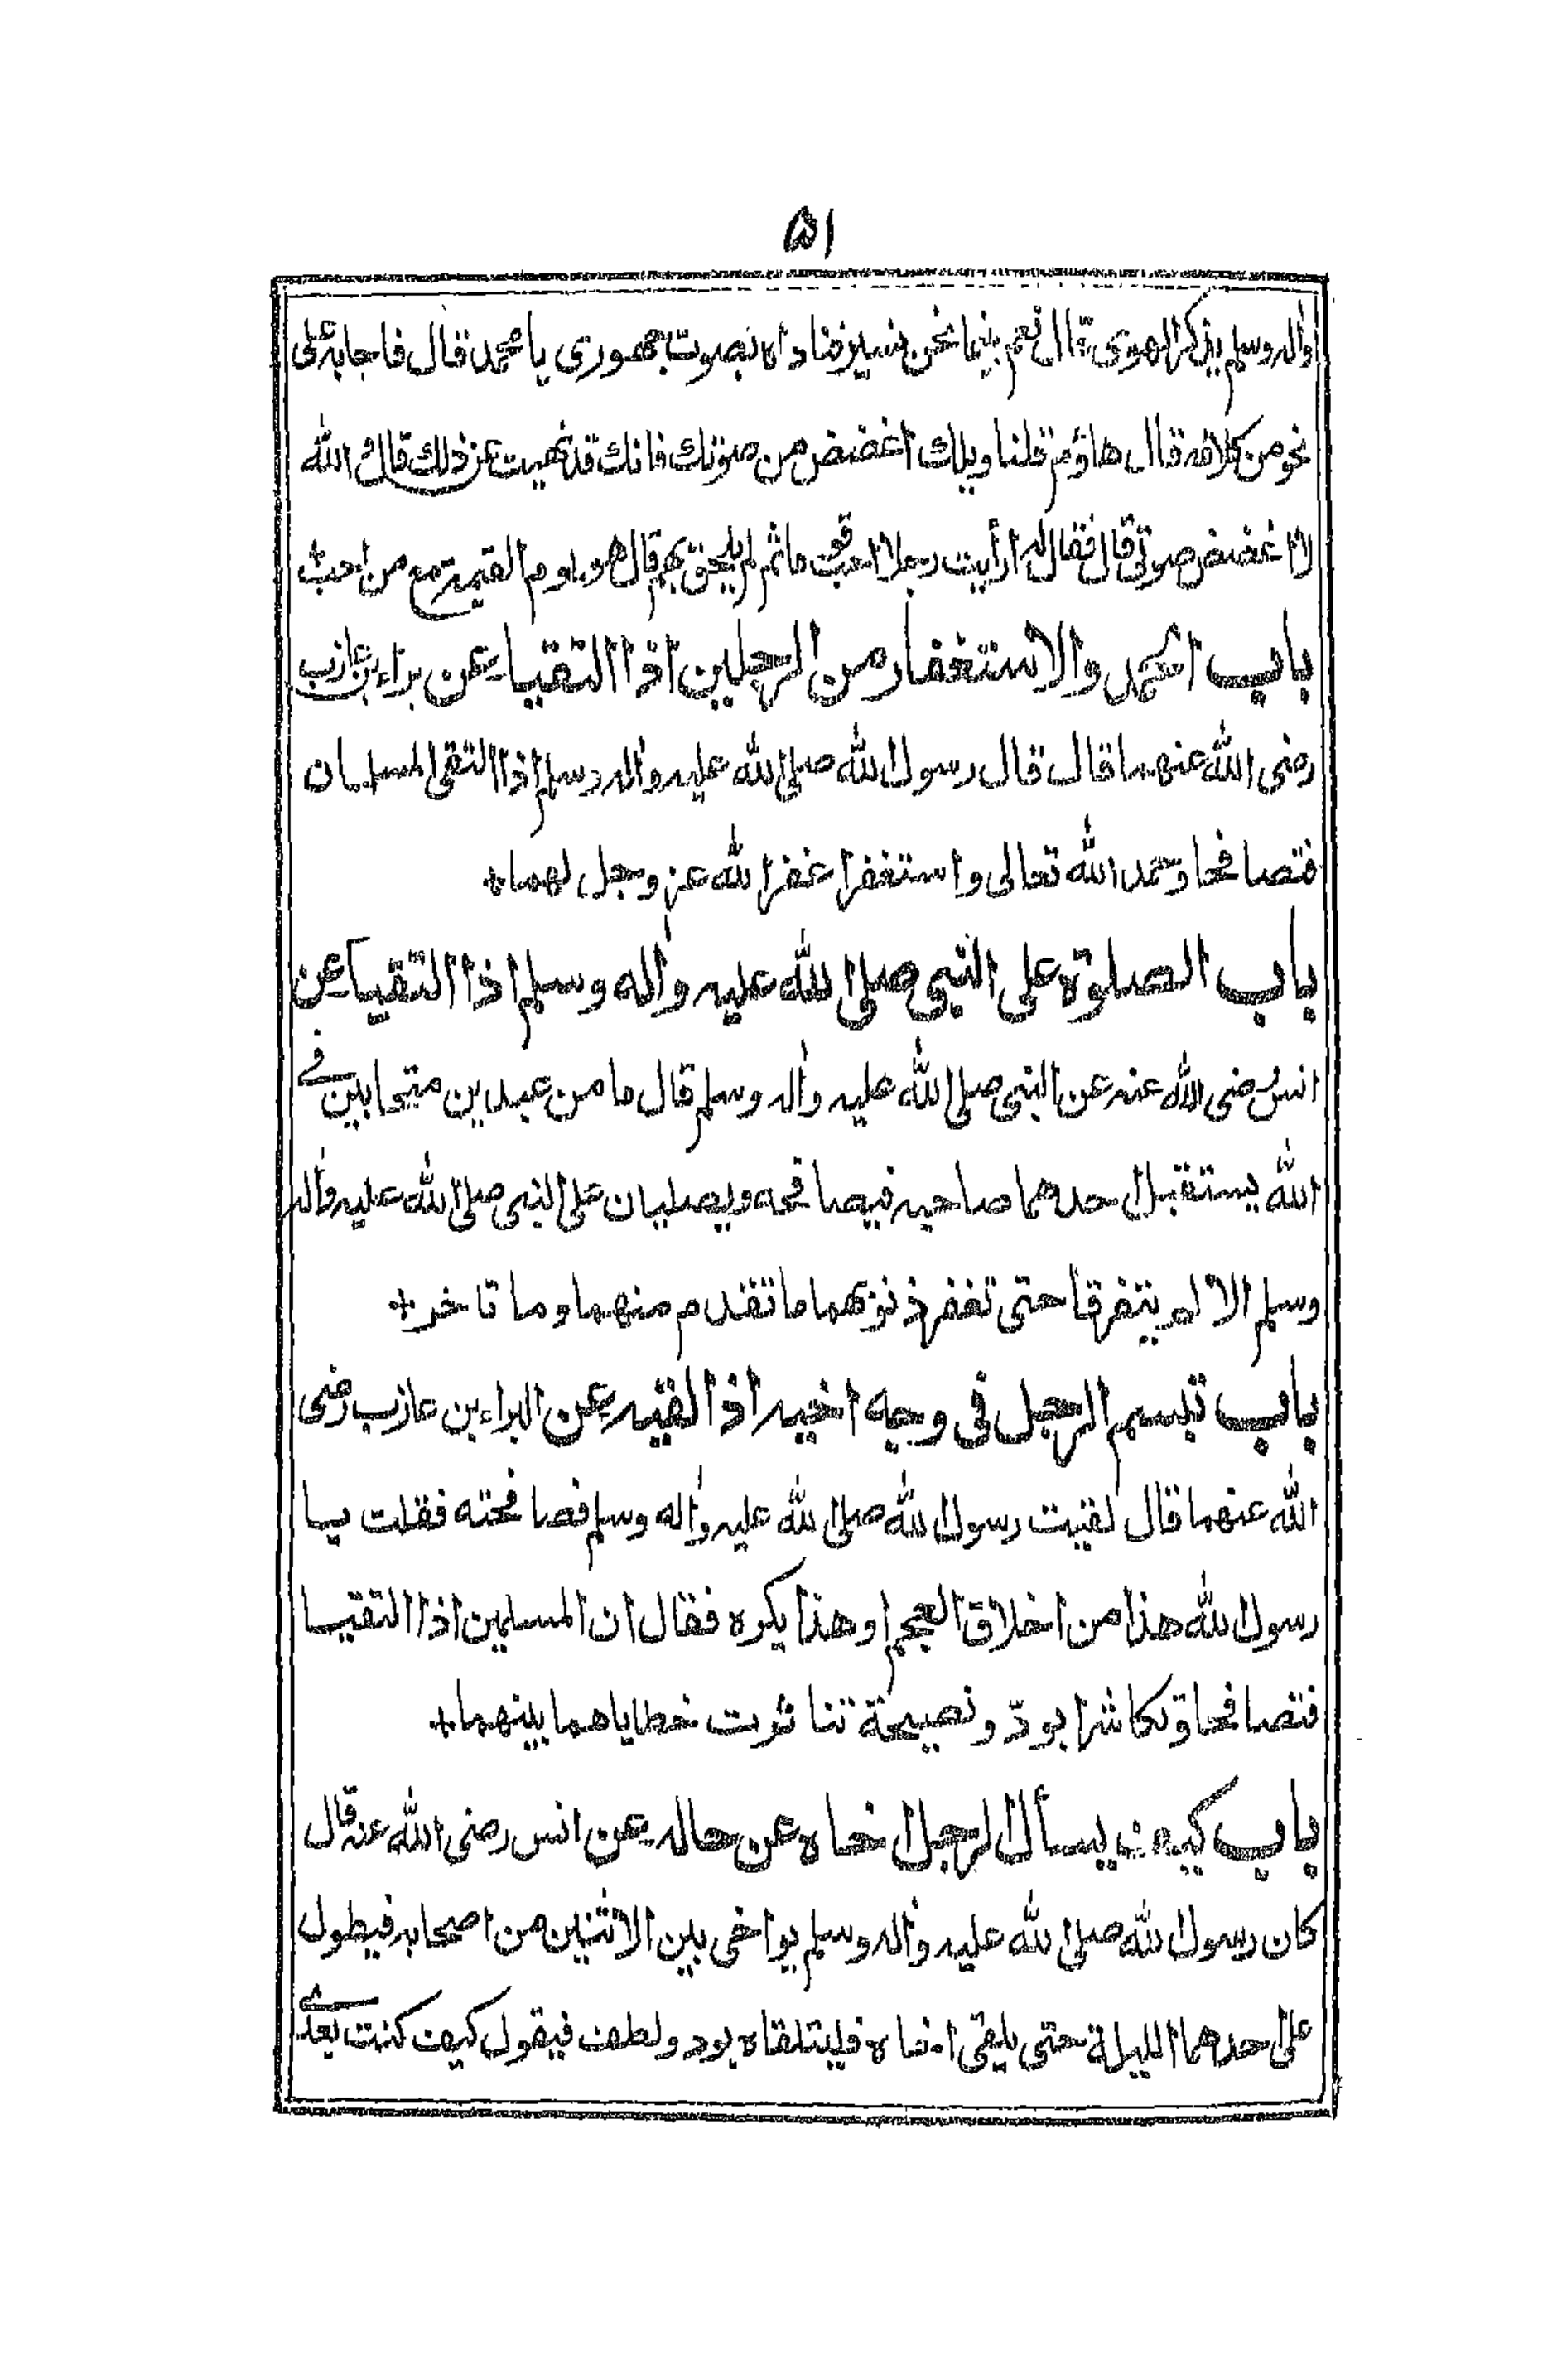 ٥١
واٰله وسلم يذكر الهوى قال نعم بينما نحن نسير فناداه بصوت جهوري يا محمد قال فاجابه على
نحو من كلامه قال هاؤم قلنا ويلك اغضض من صوتك فانك قد نهيت عن ذلك قال والله
لا اغضض صوتي قال فقال له ارأيت رجلا احب قوما ثم لم يلحق بهم قال هو يوم القيمة مع من احب
باب الحمد والاستغفار من الرجلين اذا التقيا عن براء بن عازب
رضى الله عنهما قال قال رسول الله صلى الله عليه واٰله وسلم اذا التقى المسلمان
فتصافحا وحمدا الله تعالى واستغفرا غفر الله عز وجل لهما +
باب الصلوٰة على النبي صلى الله عليه واٰله وسلم اذا التقيا عن
انس رضى الله عنه عن النبي صلى الله عليه واٰله وسلم قال ما من عبدين متحابين في
الله يستقبل احدهما صاحبه فيصافحه ويصليان على النبي صلى الله عليه واٰله
وسلم الا لم يتفرقا حتى تغفر ذنوبهما ما تقدم منهما وما تاخر +
باب تبسم الرجل في وجه اخيه اذا لقيه عن البراء بن عازب رضى
الله عنهما قال لقيت رسول الله صلى الله عليه واٰله وسلم فصافحته فقلت يا
رسول الله هذا من اخلاق العجم او هذا يكره فقال ان المسلمين اذا التقيا
فتصافحا وتكاشرا بودّ ونصيحة تناثرت خطاياهما بينهما +
باب كيف يسأل الرجل اخاه عن حاله عن انس رضى الله عنه قال
كان رسول الله صلى الله عليه واٰله وسلم يواخى بين الاثنين من اصحابه فيطول
على احدهما الليلة حتى يلقى اخاه فيتلقاه بود ولطف فيقول كيف كنت بعدي